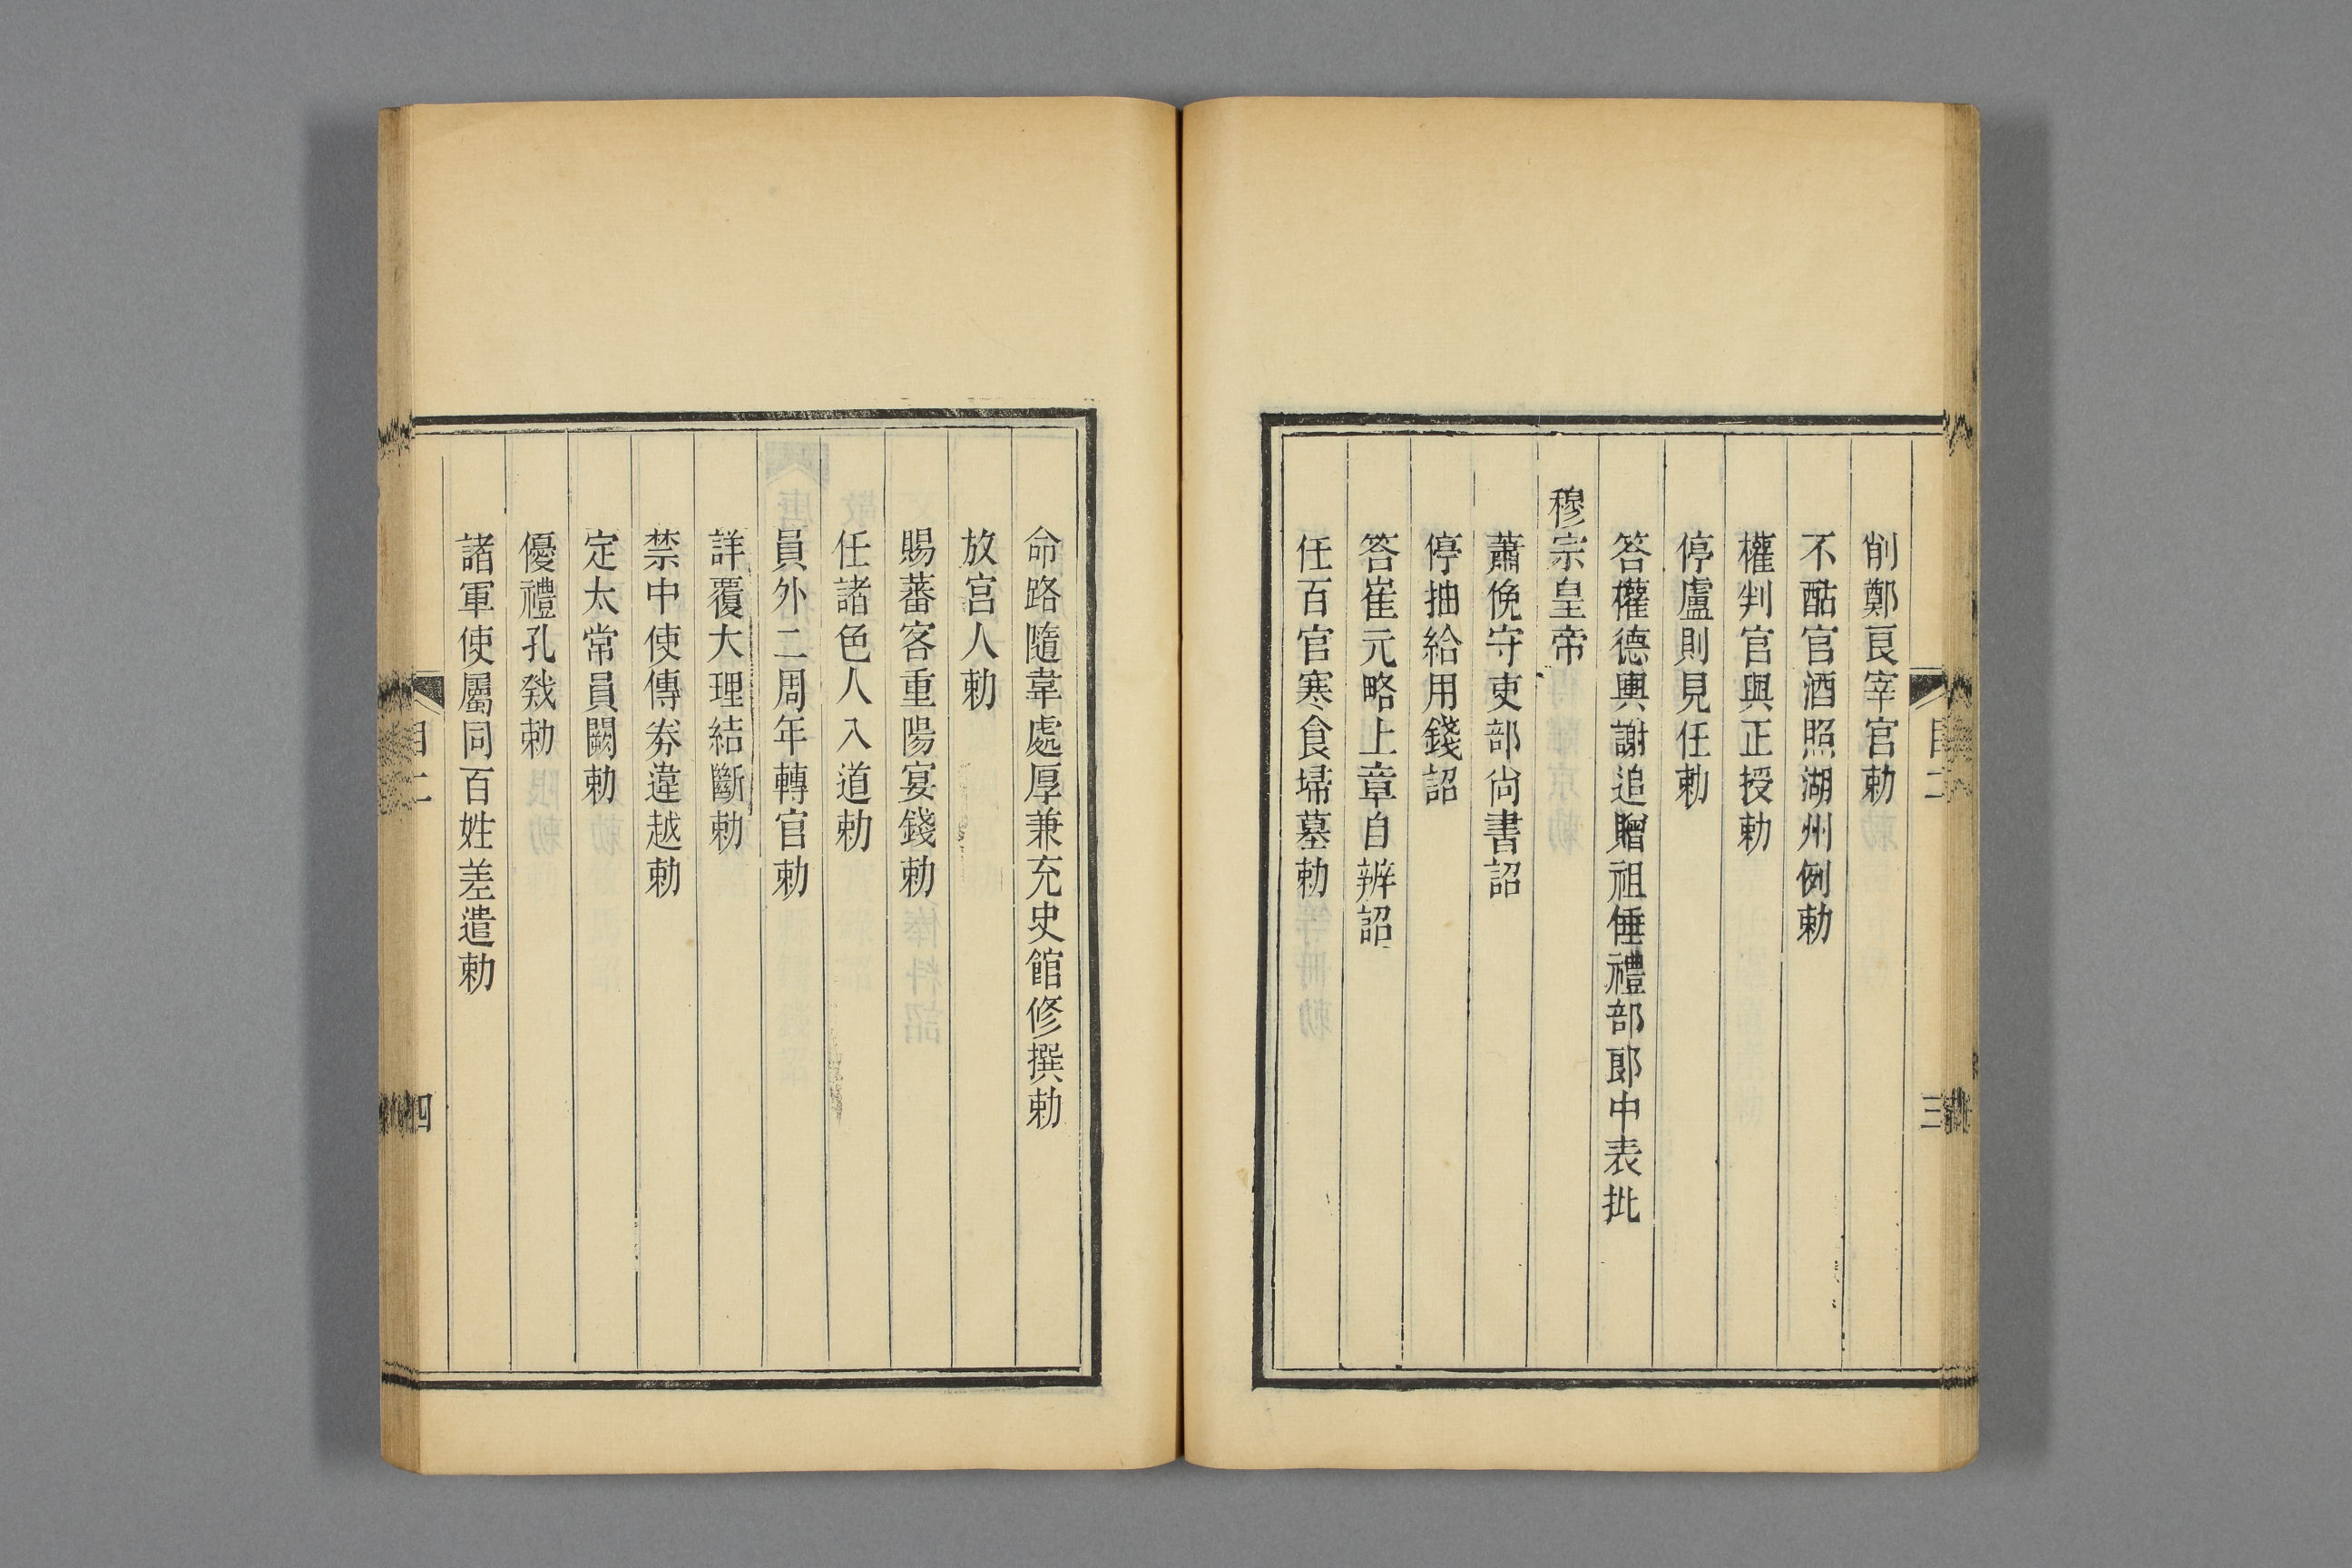 削鄭良宰官勅
不酤官酒照湖州例勅
權判官與正授勅
停盧則見任勅
答權德輿謝追贈祖倕禮部郎中表批
穆宗皇帝
蕭俛守吏部尚書詔
停抽給用錢詔
答崔元略上章自辨詔
任百官寒食埽墓勅
三
命路隨韋處厚兼充史館修撰勅
放宮人勅
賜蕃客重陽宴錢勅
任諸色人入道勅
員外二周年轉官勅
詳覆大理結斷勅
禁中使傳券違越勅
定太常員闕勅
優禮孔戣勅
諸軍使屬同百姓差遣勅
目二
四